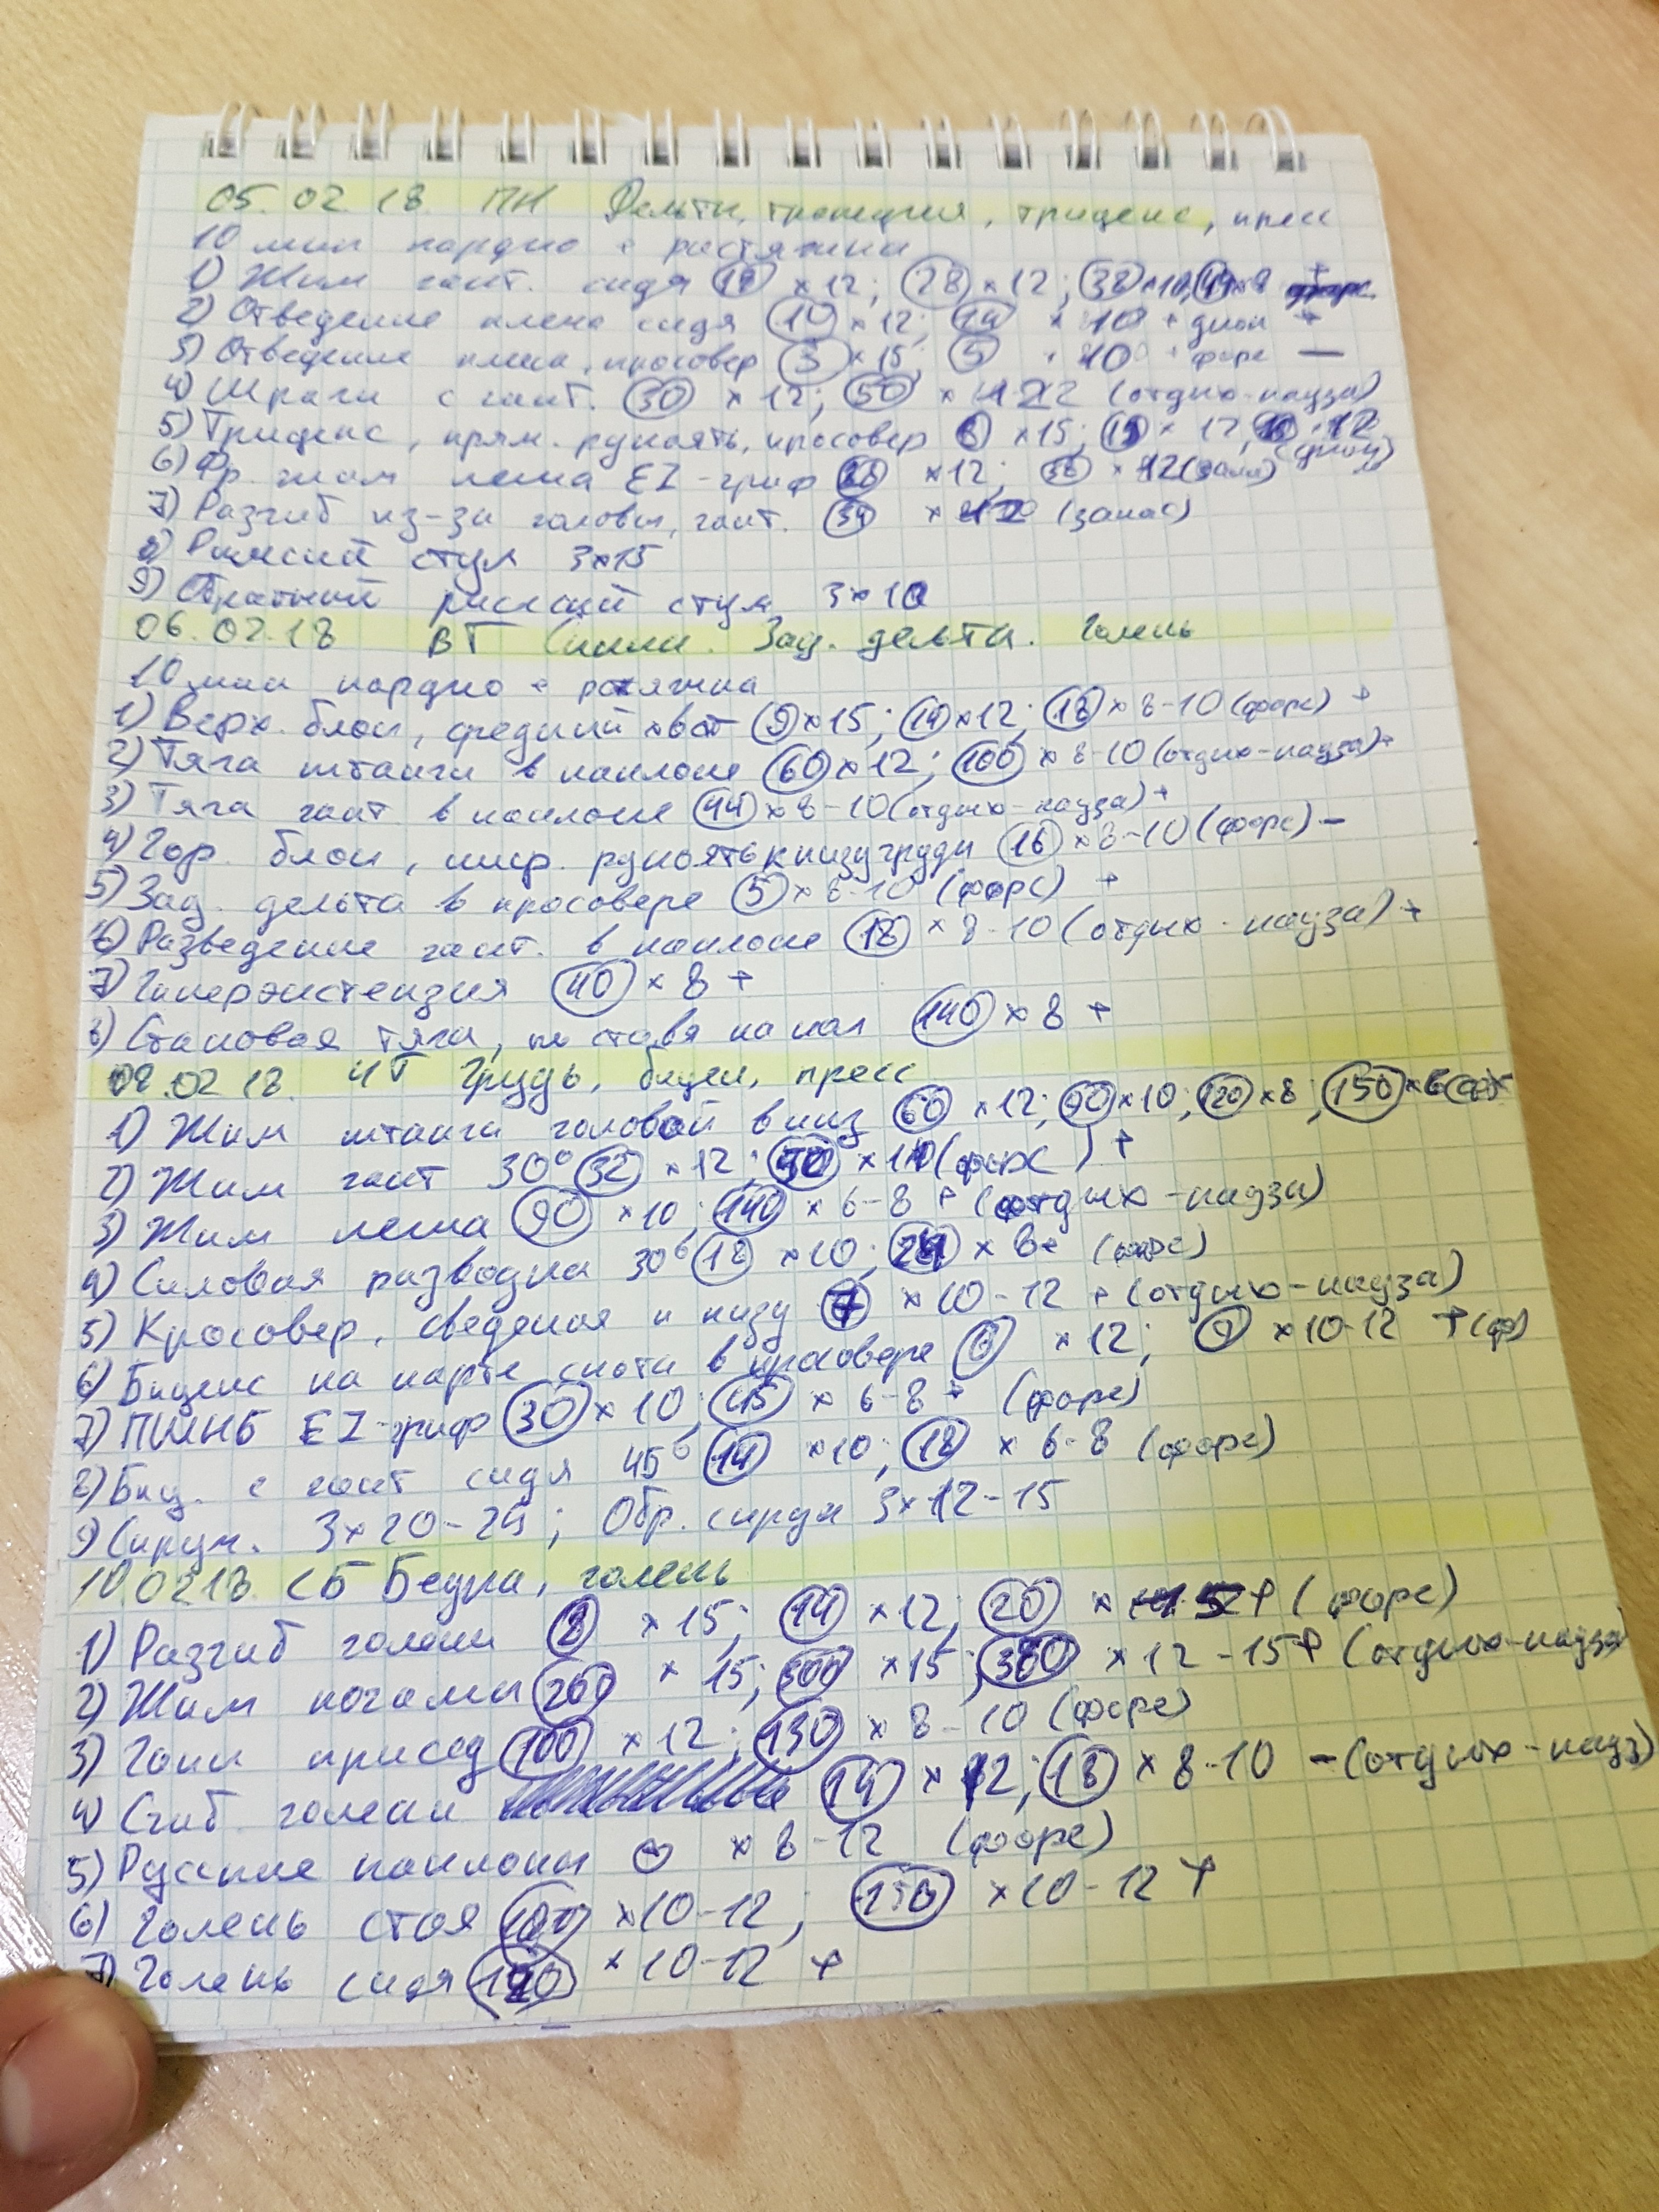 05.02.18 ПН Дельты, трапеция, трицепс, пресс
10 мин кардио + растяжка
1) Жим гант. сидя ×12; 28 ×12; 38 ×10;
2) Отведение плеча сидя 10 ×12; 14 × 10 +
3) Отведение плеча, кросовер 3 ×15; 5 × 10 + форс —
4) Шраги с гант. 30 ×12; 50 × 12 (отдых-пауза)
5) Трицепс, прям. рукоять, кросовер 8 ×15; 15 × 12; ×12
6) Фр. жим лежа EZ-гриф ×12; × 12
7) Разгиб из-за головы, гант. 34 × 12 (запас)
8) Римский стул 3×15
9) Обратный римский стул 3×10
06.02.18 ВТ Спина. Зад. дельта. Голень
10 мин кардио + ростяжка
1) Верх. блок, средний хват 9×15; 14×12; 18×8-10 (форс) +
2) Тяга штанги в наклоне 60×12; 100×8-10 (отдых-пауза)+
3) Тяга гант. в наклоне 44×8-10 (отдых-пауза)+
4) Гор. блок, шир. рукоять к низу груди 16×8-10 (форс) –
5) Зад. дельта в кросовере 5×8-10 (форс) +
6) Разведение гант. в наклоне 18×8-10 (отдых-пауза)+
7) Гиперэкстензия 40×8 +
8) Становая тяга, не ставя на пол 140×8 +
08.02.18. ЧТ Грудь, бицепс, пресс
1) Жим штанги головой вниз 60 ×12; 90×10; 120×8; 150×6
2) Жим гант 30° 32 ×12; × (форс) +
3) Жим лежа 90 ×10; 140 × 6-8 + (отдых-пауза)
4) Силовая разводка 30° 18 ×10; 24 × 8+ (форс)
5) Кросовер, сведение к низу 7 ×10-12 + (отдых-пауза)
6) Бицепс на парте скота в кросовере 6 ×12; 9 ×10-12 +(ф)
7) ПШНБ EZ-гриф 30 ×10; 45 × 6-8 + (форс)
8) Биц. с гант сидя 45° 14 ×10; 18 × 6-8 (форс)
9) Скруч. 3×20-25; Обр. скруч 3×12-15
10.02.18. СБ Бедра, голень
1) Разгиб голени 8 ×15; 14 ×12; 20 × + (форс)
2) Жим ногами 200 ×15; 300 ×15; 380 ×12-15+ (отдых-пауза
3) Гакк присед 100 ×12; 130 ×8-10 (форс)
4) Сгиб. голени 14 ×12; 18 ×8-10 –(отдых-пауз)
5) Русские наклоны 0 ×8-12 (форс)
6) Голень стоя 100 ×10-12; 150 ×10-12 +
7) Голень сидя 120 ×10-12 +